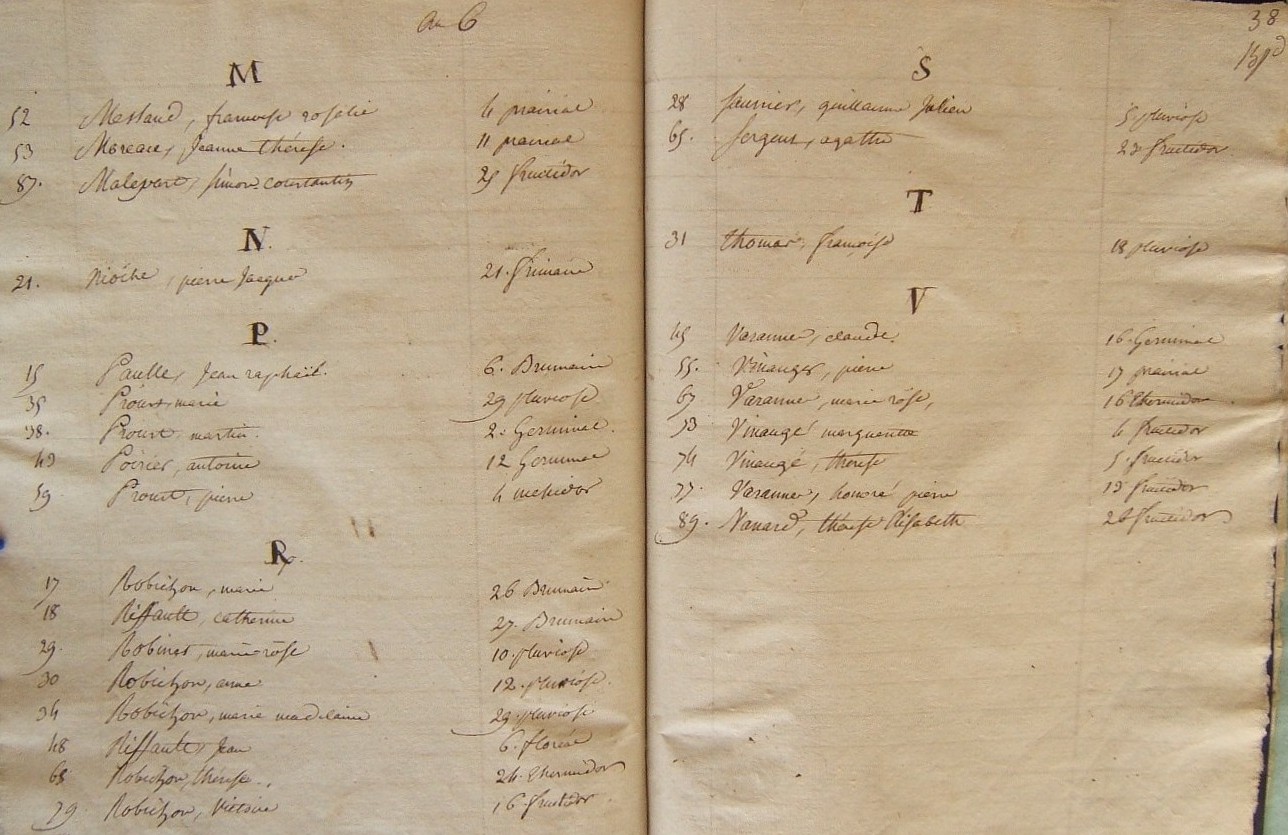 an 6
M
52 Messaud, francoise rosalie 4 prairial
53 Moreau, Jeanne thérèse. 11 prairial
87. Malepart, simon constantin 25 fructidor
N.
21. Nioche, pierre Jacques 21. frimaire
P.
15 Paulle, Jean raphaël. 6. Brumaire
35 Proust, marie 29 pluviose
38. Proust, martin. 2. Germinal.
43 Poirier, antoine 12 Germinal
59 Proust, pierre 4 messidor
R.
17 Robichon, marie 26 Brumaire
18 Riffault, catherine 27. Brumaire
29. Robinet, marie rose 10. pluviose
30 Robichon, anne 12. pluviose.
34 Robichon, marie madelaine 29. pluviose
48 Riffault, Jean 6. floréal
68 Robichon, thérèse. 24. thermidor
79 Robichon, Victoire 16. fructidor
38
S
28 Saunier, guillaume Julien 5 pluviose
65. Sergent, agathe 23 fructidor
T
31 thomas, françoise 18 pluviose
V
45 Varanne, claude. 16. Germinal
55. Vinanger, pierre 17 prairial
67 Varanne, marie rose, 16 thermidor
73 Vinaugé marguerite 4 fructidor
74 Vinaugé, therese 5. fructidor
77. Varanne, honoré pierre 13 fructidor
89. Vanard, thérese Elisabeth 26 fructidor